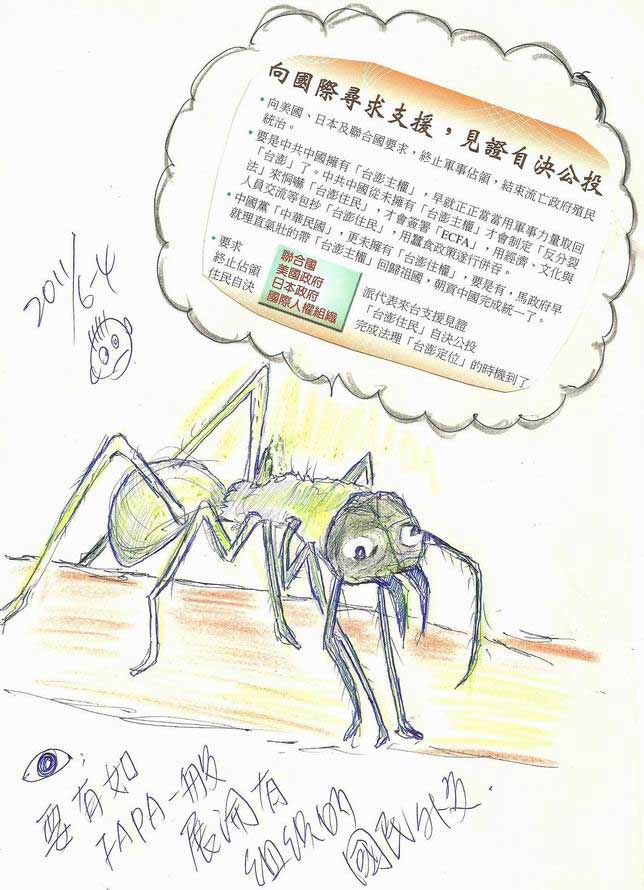 向國際尋求支援，見證自決公投
• 向美國、日本及聯合國要求，終止軍事佔領，結束流亡政府殖民
統治。
• 要是中共中國擁有「台澎主權」，早就正正當當用軍事力量取回
「台澎」了。中共中國從未擁有「台澎主權」才會制定「反分裂
法」來恫嚇「台澎住民」，才會簽署「ECFA」，用經濟、文化與
人員交流等包抄「台澎住民」，用蠶食政策遂行併吞。
• 中國黨「中華民國」，更未擁有「台澎住權」，要是有，馬政府早
就理直氣壯的帶「台澎主權」回歸祖國，朝貢中國完成統一了。
• 要求
終止佔領
住民自決
聯合國
美國政府
日本政府
國際人權組織
派代表來台支援見證
「台澎住民」自決公投
完成法理「台澎定位」的時機到了
2011/6-4
要有如
FAPA一般
展開有
組織的
國民外交.